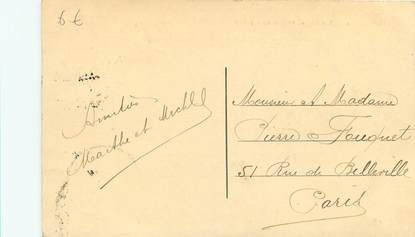 6 €
Amitiés
Marthe et Michel
Monsieur et Madame
Pierre Fouquet
51 Rue de Belleville
Paris